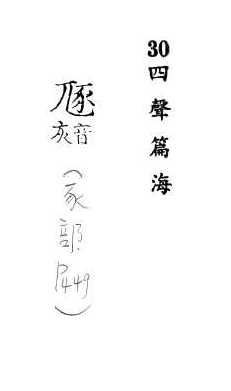 30四聲篇海
豗
音灰
(豕部
P449)